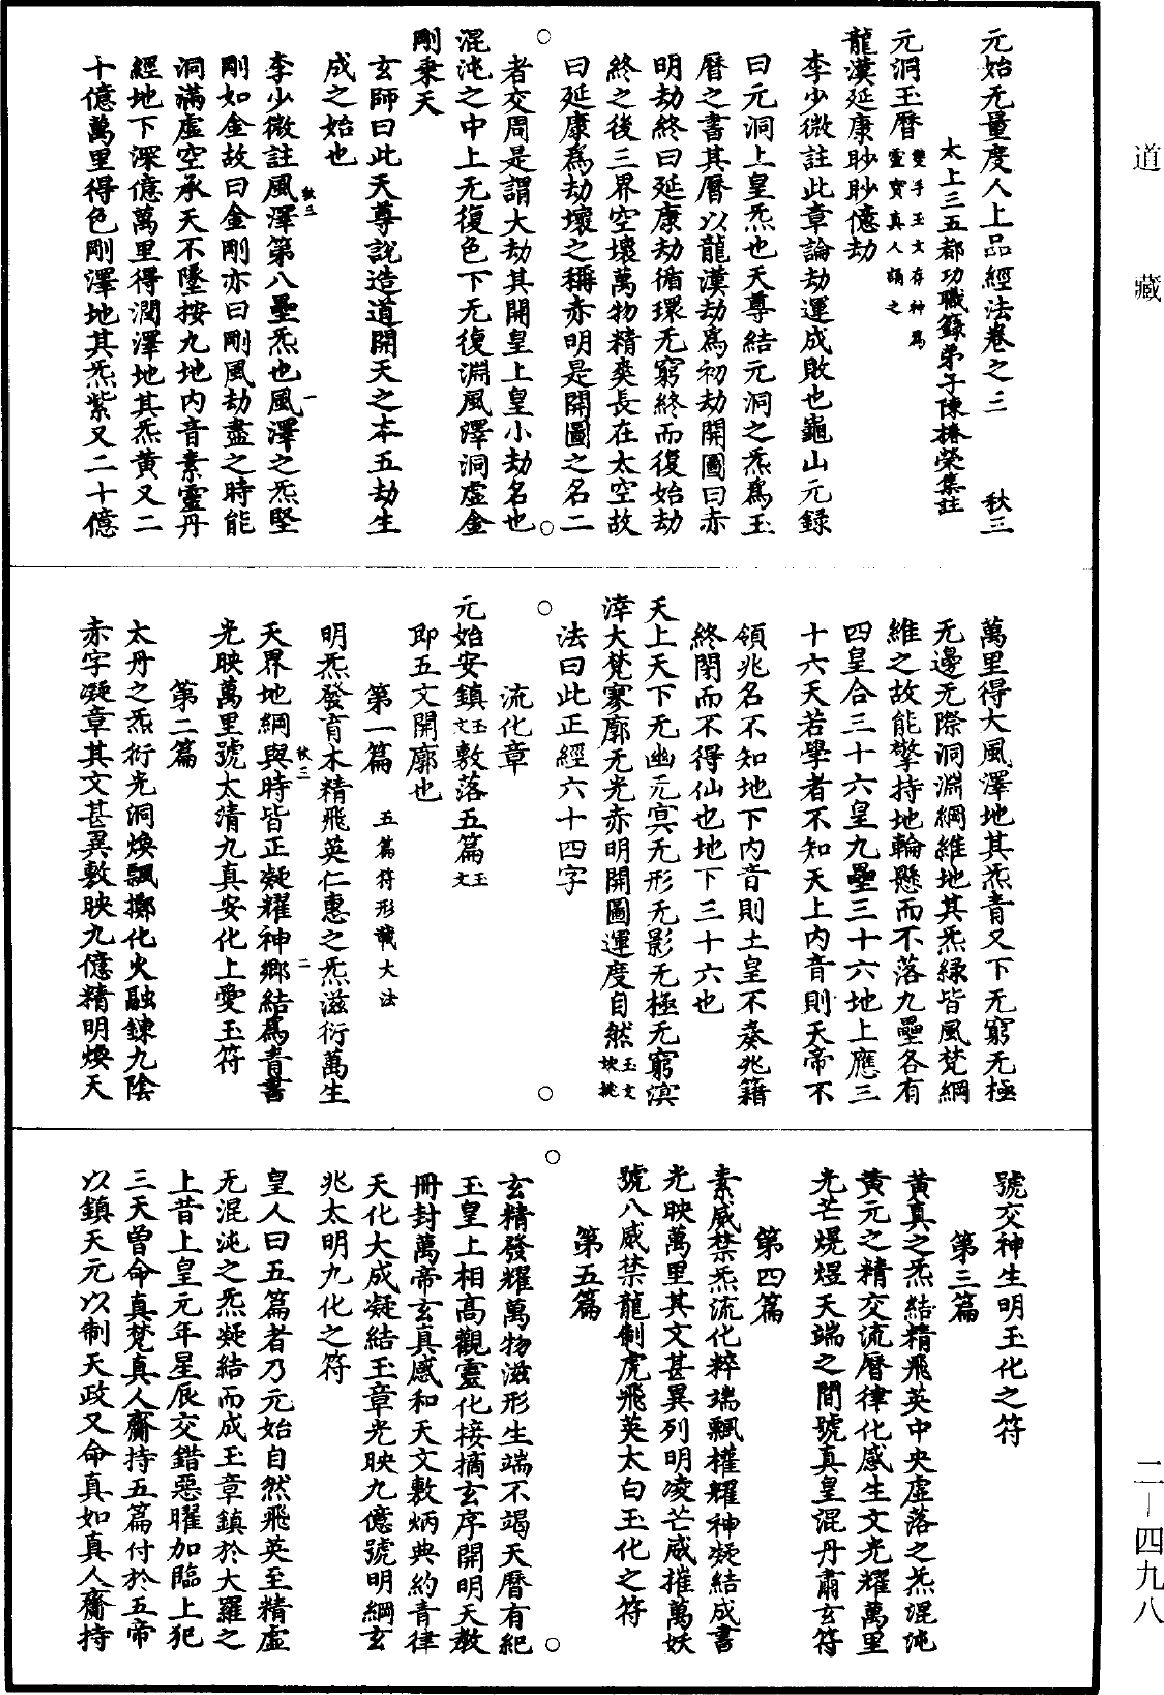 道藏
元始无量度人上品經法卷之三　秋三
太上三五都功職籙弟子陳椿榮集註
元洞玉曆雙手玉文存神為
靈寶真人誦之
龍漢延康眇眇億劫
李少微註此章論劫運成敗也龜山元錄
曰元洞上皇炁也天尊結元洞之炁為玉
曆之書其曆以龍漢劫為初劫開圖曰赤
明劫終曰延康劫循環无窮終而復始劫
終之後三界空壞萬物精爽長在太空故
曰延康為劫壞之稱赤明是開圖之名二
者交周是謂大劫其開皇上皇小劫名也
混沌之中上无復色下无復淵風澤洞虛金
剛乘天
玄師曰此天尊說造道開天之本五劫生
成之始也
李少微註風澤第八壘炁也風澤之炁堅
秋三　一
剛如金故曰金剛亦曰剛風劫盡之時能
洞滿虛空承天不墜按九地內音素靈丹
經地下深億萬里得潤澤地其炁黃又二
十億萬里得色剛澤地其炁紫又二十億
萬里得大風澤地其炁青又下无窮无極
无邊无際洞淵綱維地其炁綠皆風梵綱
維之故能擎持地輪懸而不落九壘各有
四皇合三十六皇九壘三十六地上應三
十六天若學者不知天上內音則天帝不
領兆名不知地下內音則土皇不奏兆籍
終閉而不得仙也地下三十六也
天上天下无幽无冥无形无影无極无窮溟
涬大梵寥廓无光赤明開圖運度自然玉文
訣挑
法曰此正經六十四字
流化章
元始安鎮玉文敷落五篇玉文
即五文開廓也
第一篇　五篇符形載大法
明炁發育木精飛英仁惠之炁滋衍萬生
秋三　二
天界地綱與時皆正凝耀神鄉結為青書
光映萬里號太清九真安化上愛玉符
第二篇
太丹之炁衍光洞煥飄擲化火融鍊九陰
赤字凝章其文甚異敷映九億精明煥天
號交神生明玉化之符
第三篇
黃真之炁結精飛英中央虛落之炁混沌
黃元之精交流曆律化感生文光耀萬里
光芒熀煜天端之間號真皇混丹肅玄符
第四篇
素威禁炁流化粹端飄權耀神凝結成書
光映萬里其文甚異列明凌芒威摧萬妖
號八威禁龍制虎飛英太白玉化之符
第五篇
玄精發耀萬物滋形生端不竭天曆有紀
玉皇上相高觀靈化接摘玄序開明天教
冊封萬帝玄真感和天文敷炳典約青律
天化大成凝結玉章光映九億號明綱玄
兆太明九化之符
皇人曰五篇者乃元始自然飛英至精虛
无混沌之炁凝結而成玉章鎮於大羅之
上昔上皇元年星辰交錯惡曜加臨上犯
三天曾命真梵真人齎持五篇付於五帝
以鎮天元以制天政又命真如真人齎持
二—四九八